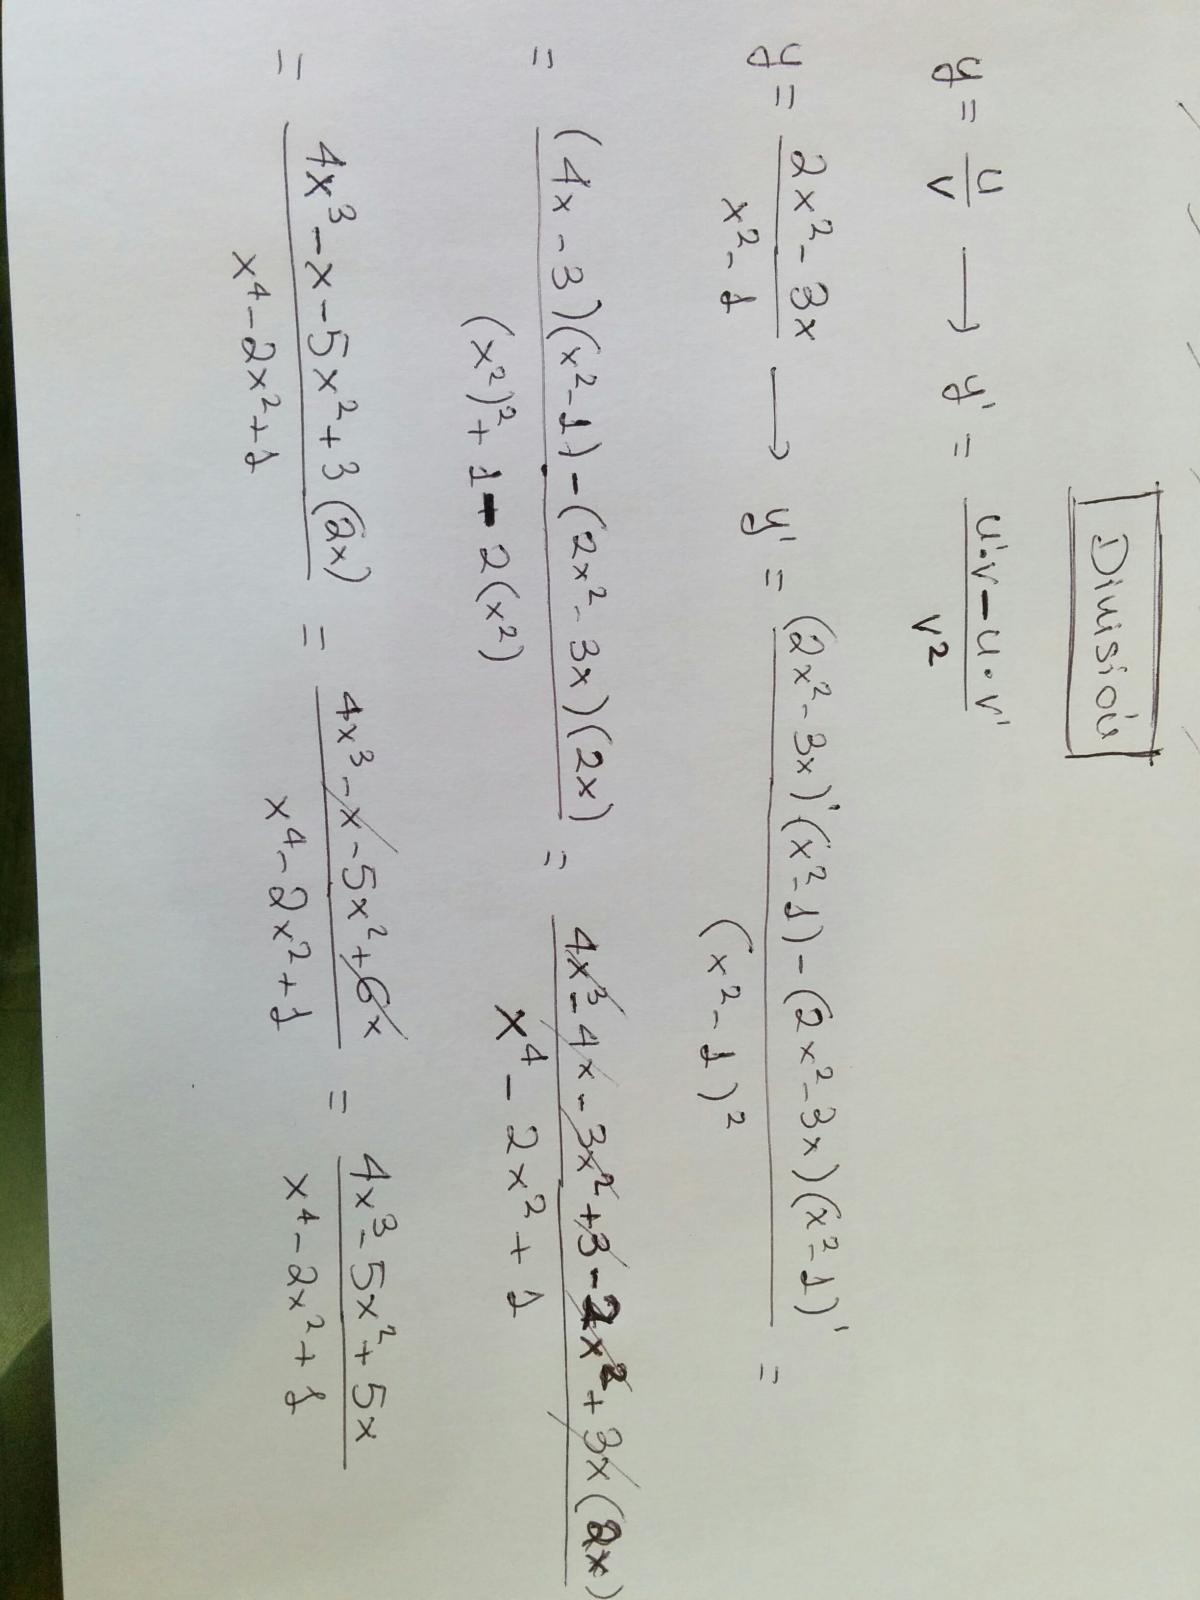 División
y = u/v → y' = (u'·v - u·v')/v²
y = (2x² - 3x)/(x² - 1) → y' = ((2x² - 3x)'(x² - 1) - (2x² - 3x)(x² - 1)')/(x² - 1)² =
= ((4x - 3)(x² - 1) - (2x² - 3x)(2x))/((x²)² + 1 - 2(x²)) = (4x³ - 4x - 3x² + 3 - 2x² + 3x(2x))/(x⁴ - 2x² + 1)
= (4x³ - x - 5x² + 3(2x))/(x⁴ - 2x² + 1) = (4x³ - x - 5x² + 6x)/(x⁴ - 2x² + 1) = (4x³ - 5x² + 5x)/(x⁴ - 2x² + 1)